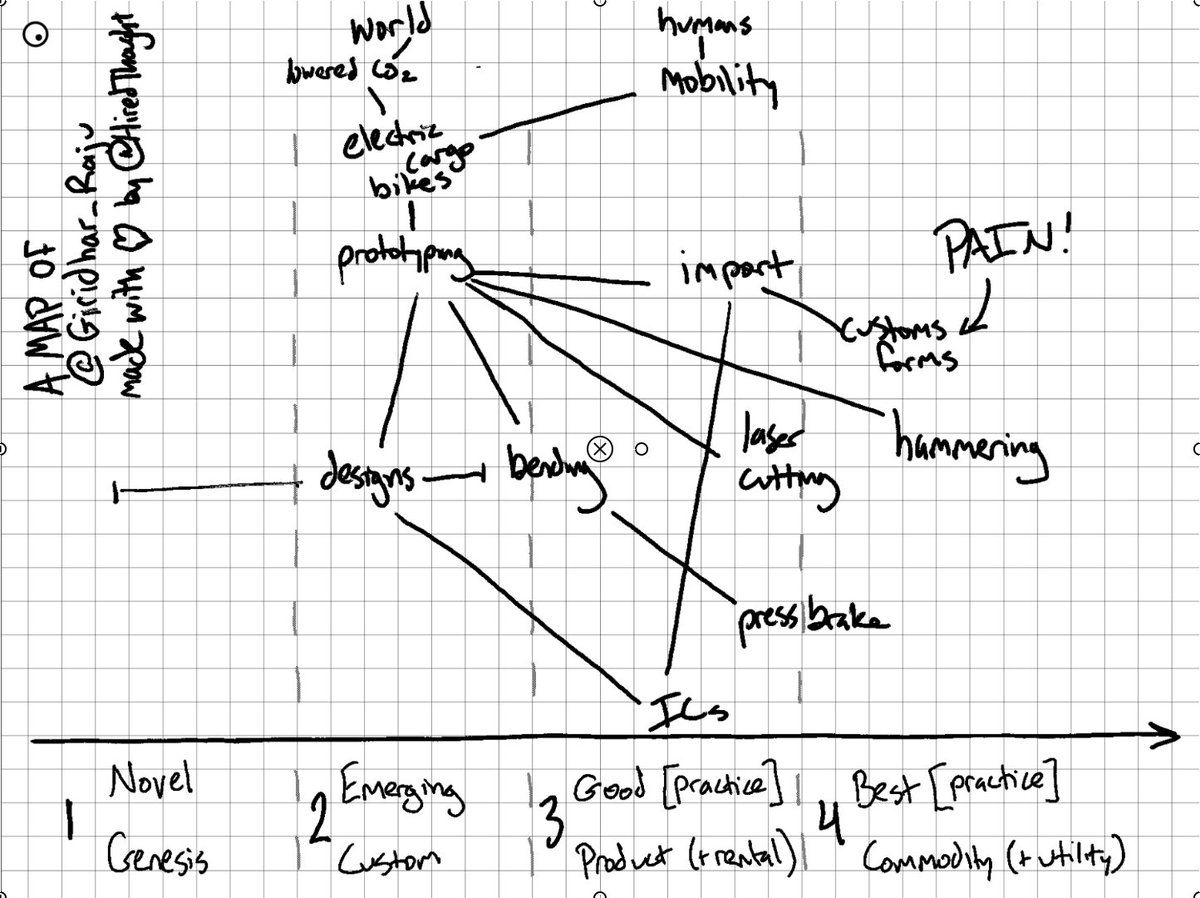 A MAP OF
@Giridhar_Raju
made with ♡ by @HiredThought
World
lowered CO2
electric
cargo
bikes
humans
Mobility
prototyping
import
PAIN!
customs
forms
hammering
laser
cutting
designs
bending
press brake
ICs
1 Novel
Genesis
2 Emerging
Custom
3 Good [practice]
Product (+rental)
4 Best [practice]
Commodity (+utility)